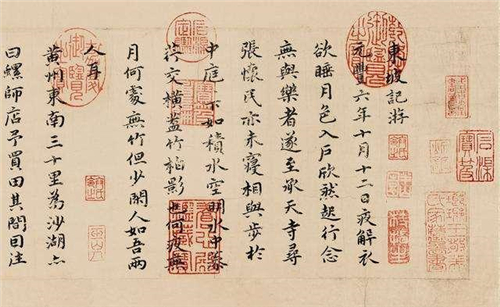 東坡記游
元豐六年十月十二日夜解衣
欲睡月色入户欣然起行念
無與樂者遂至承天寺尋
張懷民亦未寢相與步於
中庭下如積水空明水中藻
荇交橫蓋竹柏影也何夜無
月何處無竹但少閑人如吾兩
人耳
黃州東南三十里為沙湖亦
曰螺師店予買田其間因往